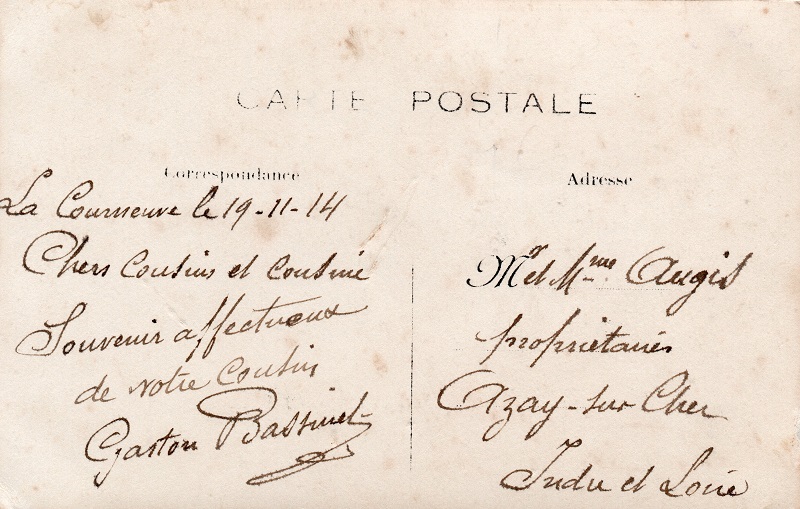 CARTE POSTALE
Correspondance
La Courneuve le 19-11-14
Chers Cousins et Cousine
Souvenir affectueux
de votre Cousin
Gaston Bassinet
Adresse
Mr et Mme Augis
propriétaires
Azay-sur Cher
Indre et Loire